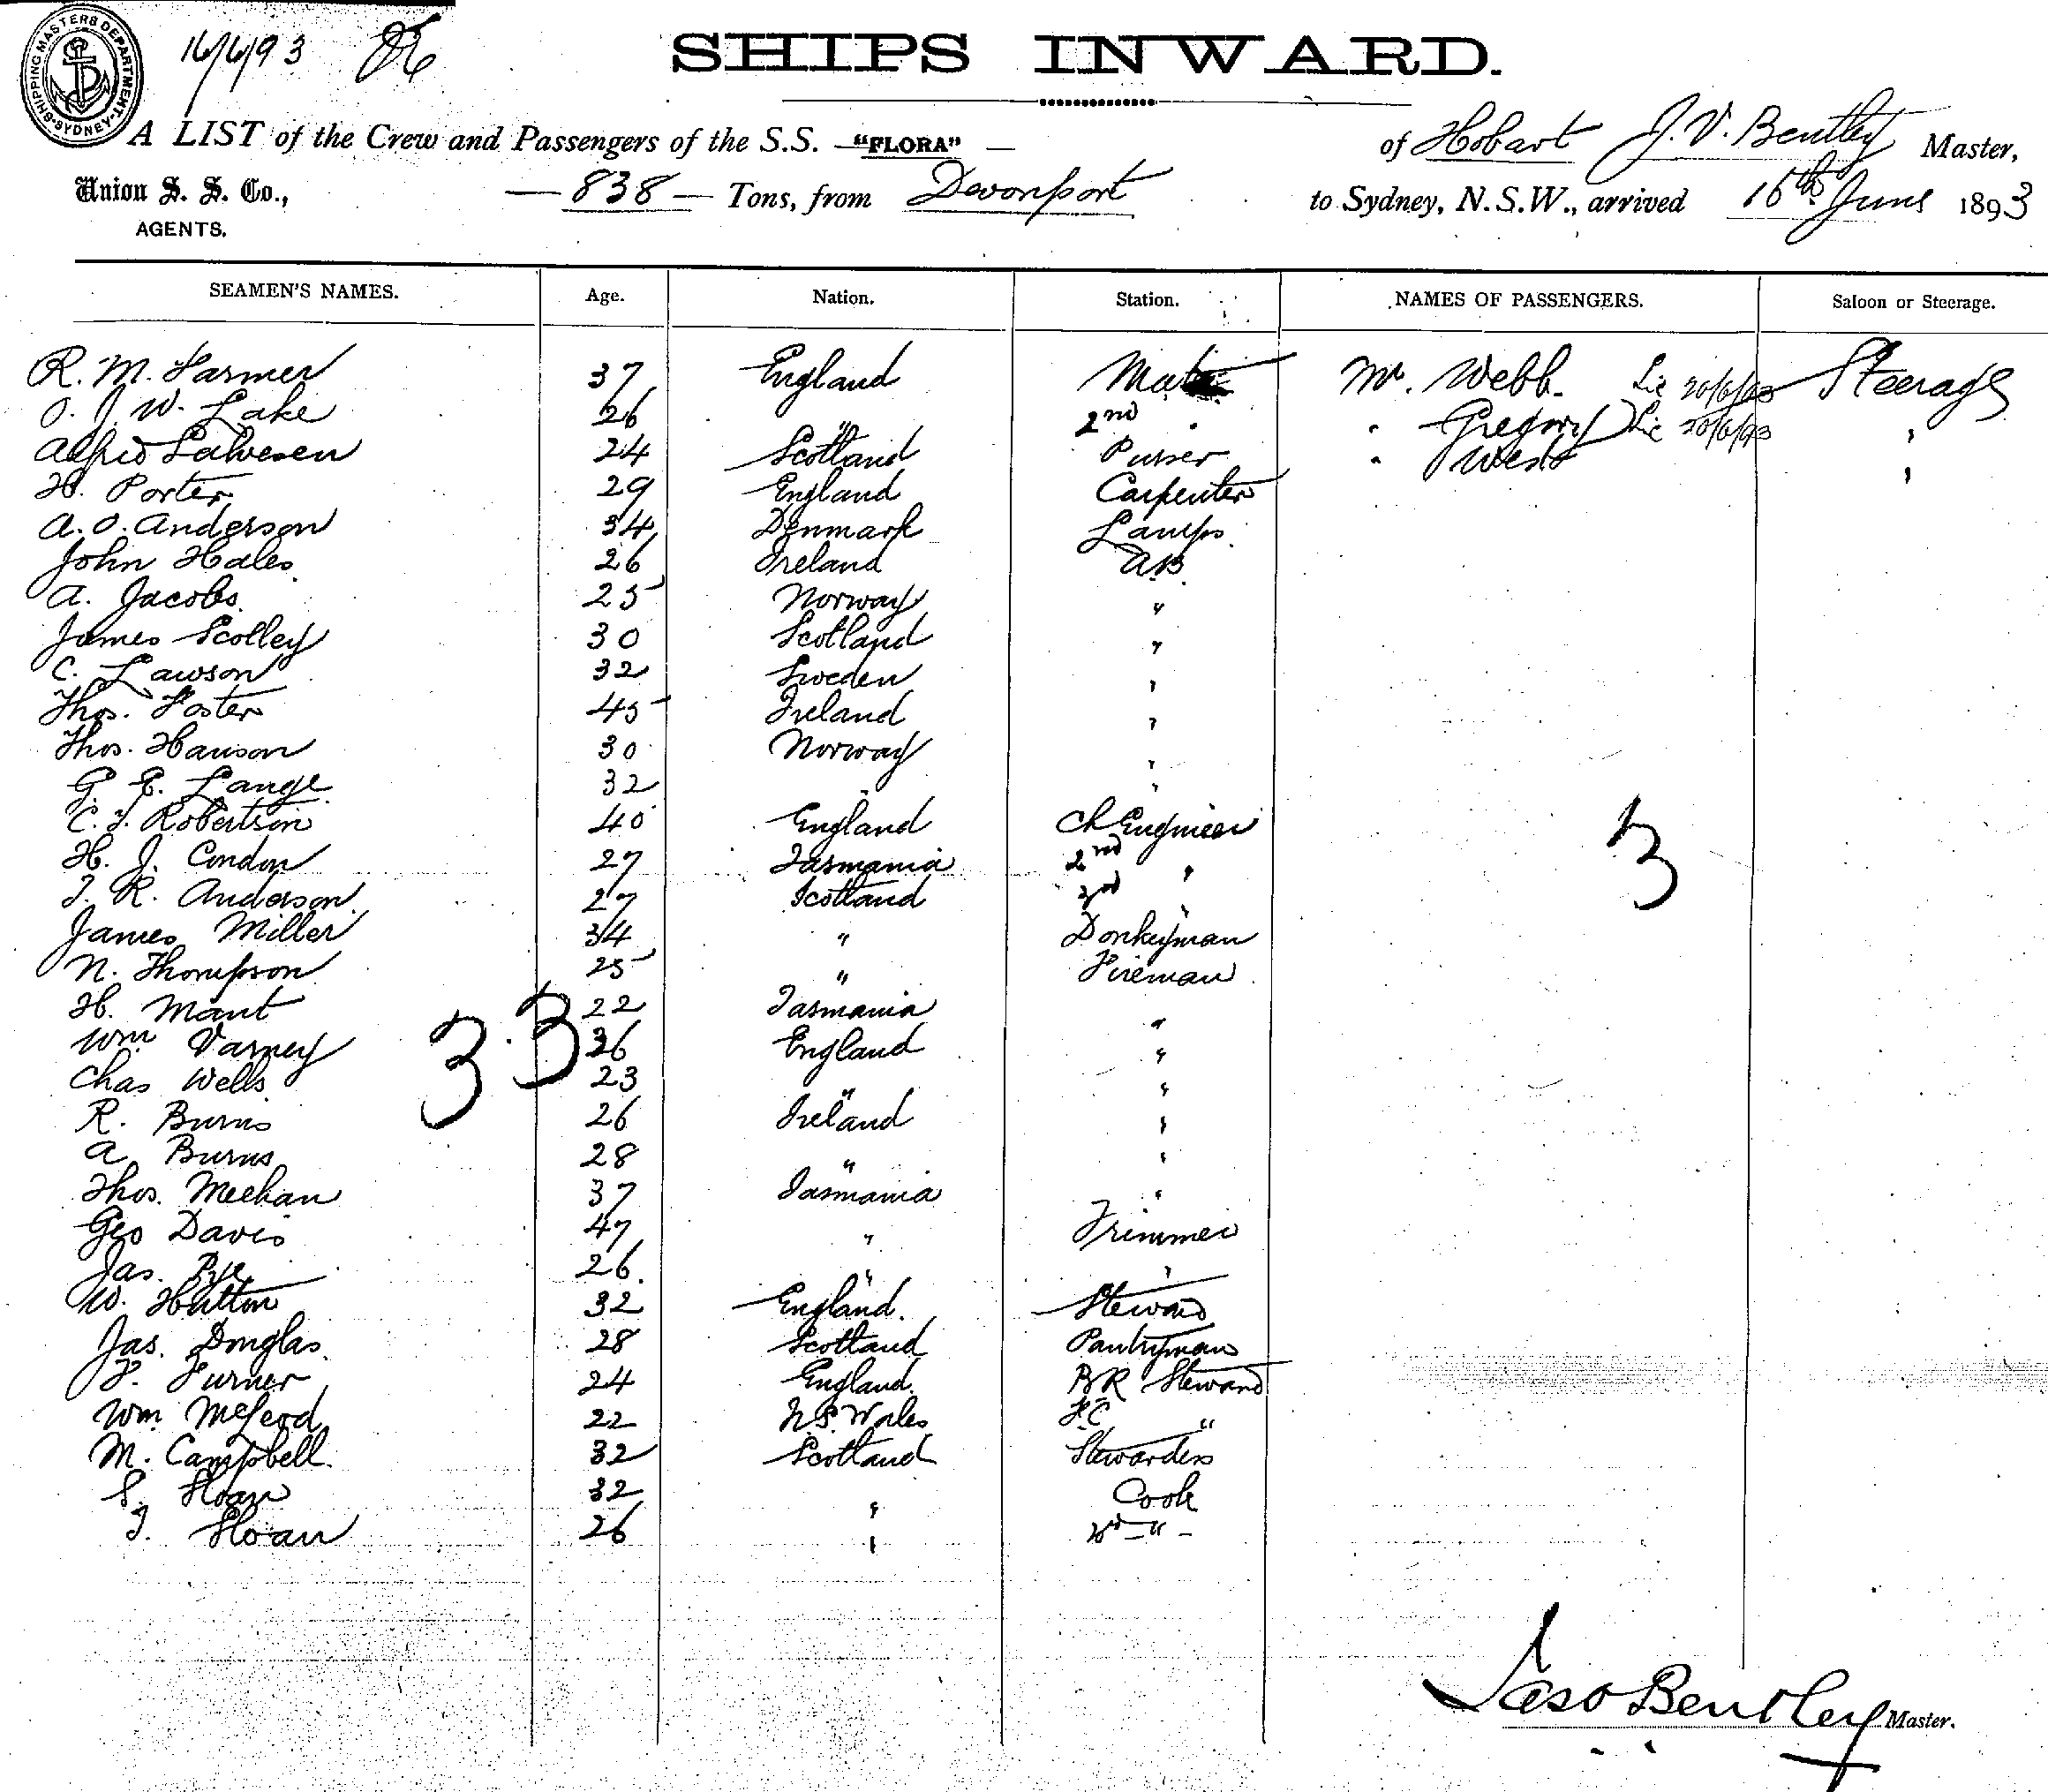 SHIPPING MASTERS DEPARTMENT SYDNEY
16/6/93 86
SHIPS INWARD.
A LIST of the Crew and Passengers of the S.S. "FLORA" of Hobart J. V. Bentley Master,
Union S. S. Co., — 838 — Tons, from Devonport to Sydney, N.S.W., arrived 16th June 1893
AGENTS.
SEAMEN'S NAMES. Age. Nation. Station. NAMES OF PASSENGERS. Saloon or Steerage.
R. M. Farmer 37 England Mate Mr. Webb. Lic 20/6/93 Steerage
O. J. W. Lake 26 " 2nd " " Gregory Lic 20/6/93 "
Alfred Salvesen 24 Scotland Purser " West "
H. Porter 29 England Carpenter
A. O. Anderson 34 Denmark Lamps.
John Hales 26 Ireland AB.
A. Jacobs 25 Norway "
James Scolley 30 Scotland "
C. Lawson 32 Sweden "
Thos. Foster 45 Ireland "
Thos. Hanson 30 Norway "
G. E. Lange 32 " "
C. F. Robertson 40 England Ch Engineer
H. J. Condon 27 Tasmania 2nd "
T. R. Anderson 27 Scotland 3rd "
James Miller 34 " Donkeyman
N. Thompson 25 " Fireman
H. Mant 22 Tasmania "
Wm Varney 36 England "
Chas Wells 23 " "
R. Burns 26 Ireland "
A Burns 28 " "
Thos. Meehan 37 Tasmania "
Geo Davis 47 " Trimmer
Jas. Pye 26 " "
W. Hutton 32 England. Steward
Jas. Douglas 28 Scotland Pantryman
F. Turner 24 England BR Steward
Wm McLeod 22 N.S. Wales F.C "
M. Campbell 32 Scotland Stewardess
S. Sloan 32 " Cook
T. Sloan 26 " 2nd — " —
33
3
Bentley Master.